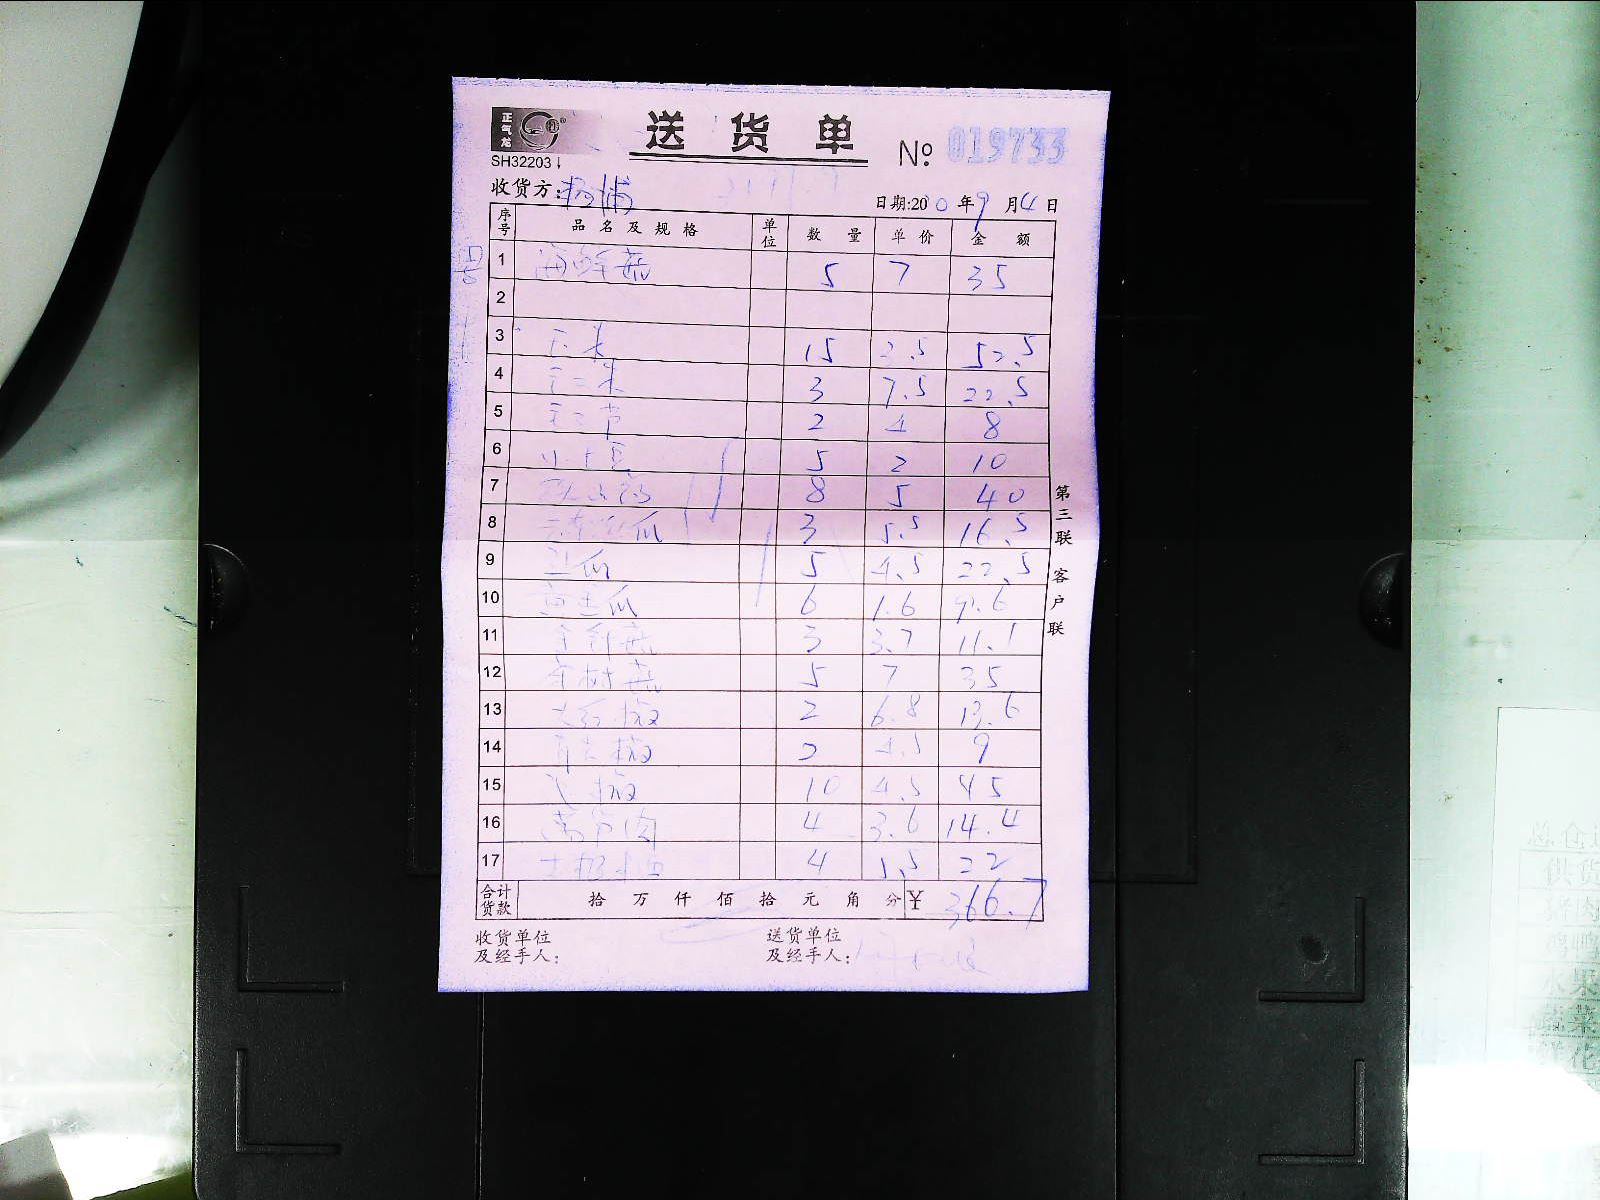 正气龙
送货单 № 019733
SH32203
收货方: 杨浦 日期:20 0年9月4日
序号 品名及规格 单位 数量 单价 金额
1 海鲜菇 5 7 35
2
3 玉米 15 3.5 52.5
4 玉米 3 7.5 22.5
5 2 4 8
6 小土豆 5 2 10
7 铁山药 8 5 40
8 瓜 3 5.5 16.5
9 瓜 5 4.5 22.5
10 黄金瓜 6 1.6 9.6
11 金针菇 3 3.7 11.1
12 茶树菇 5 7 35
13 大红椒 2 6.8 13.6
14 青大椒 2 4.5 9
15 尖椒 10 4.5 45
16 莴笋肉 4 3.6 14.4
17 4 5.5 22
合计货款 拾 万 仟 佰 拾 元 角 分 ¥ 366.7
收货单位 送货单位
及经手人: 及经手人:
第三联 客户联
供货
水果
蔬菜